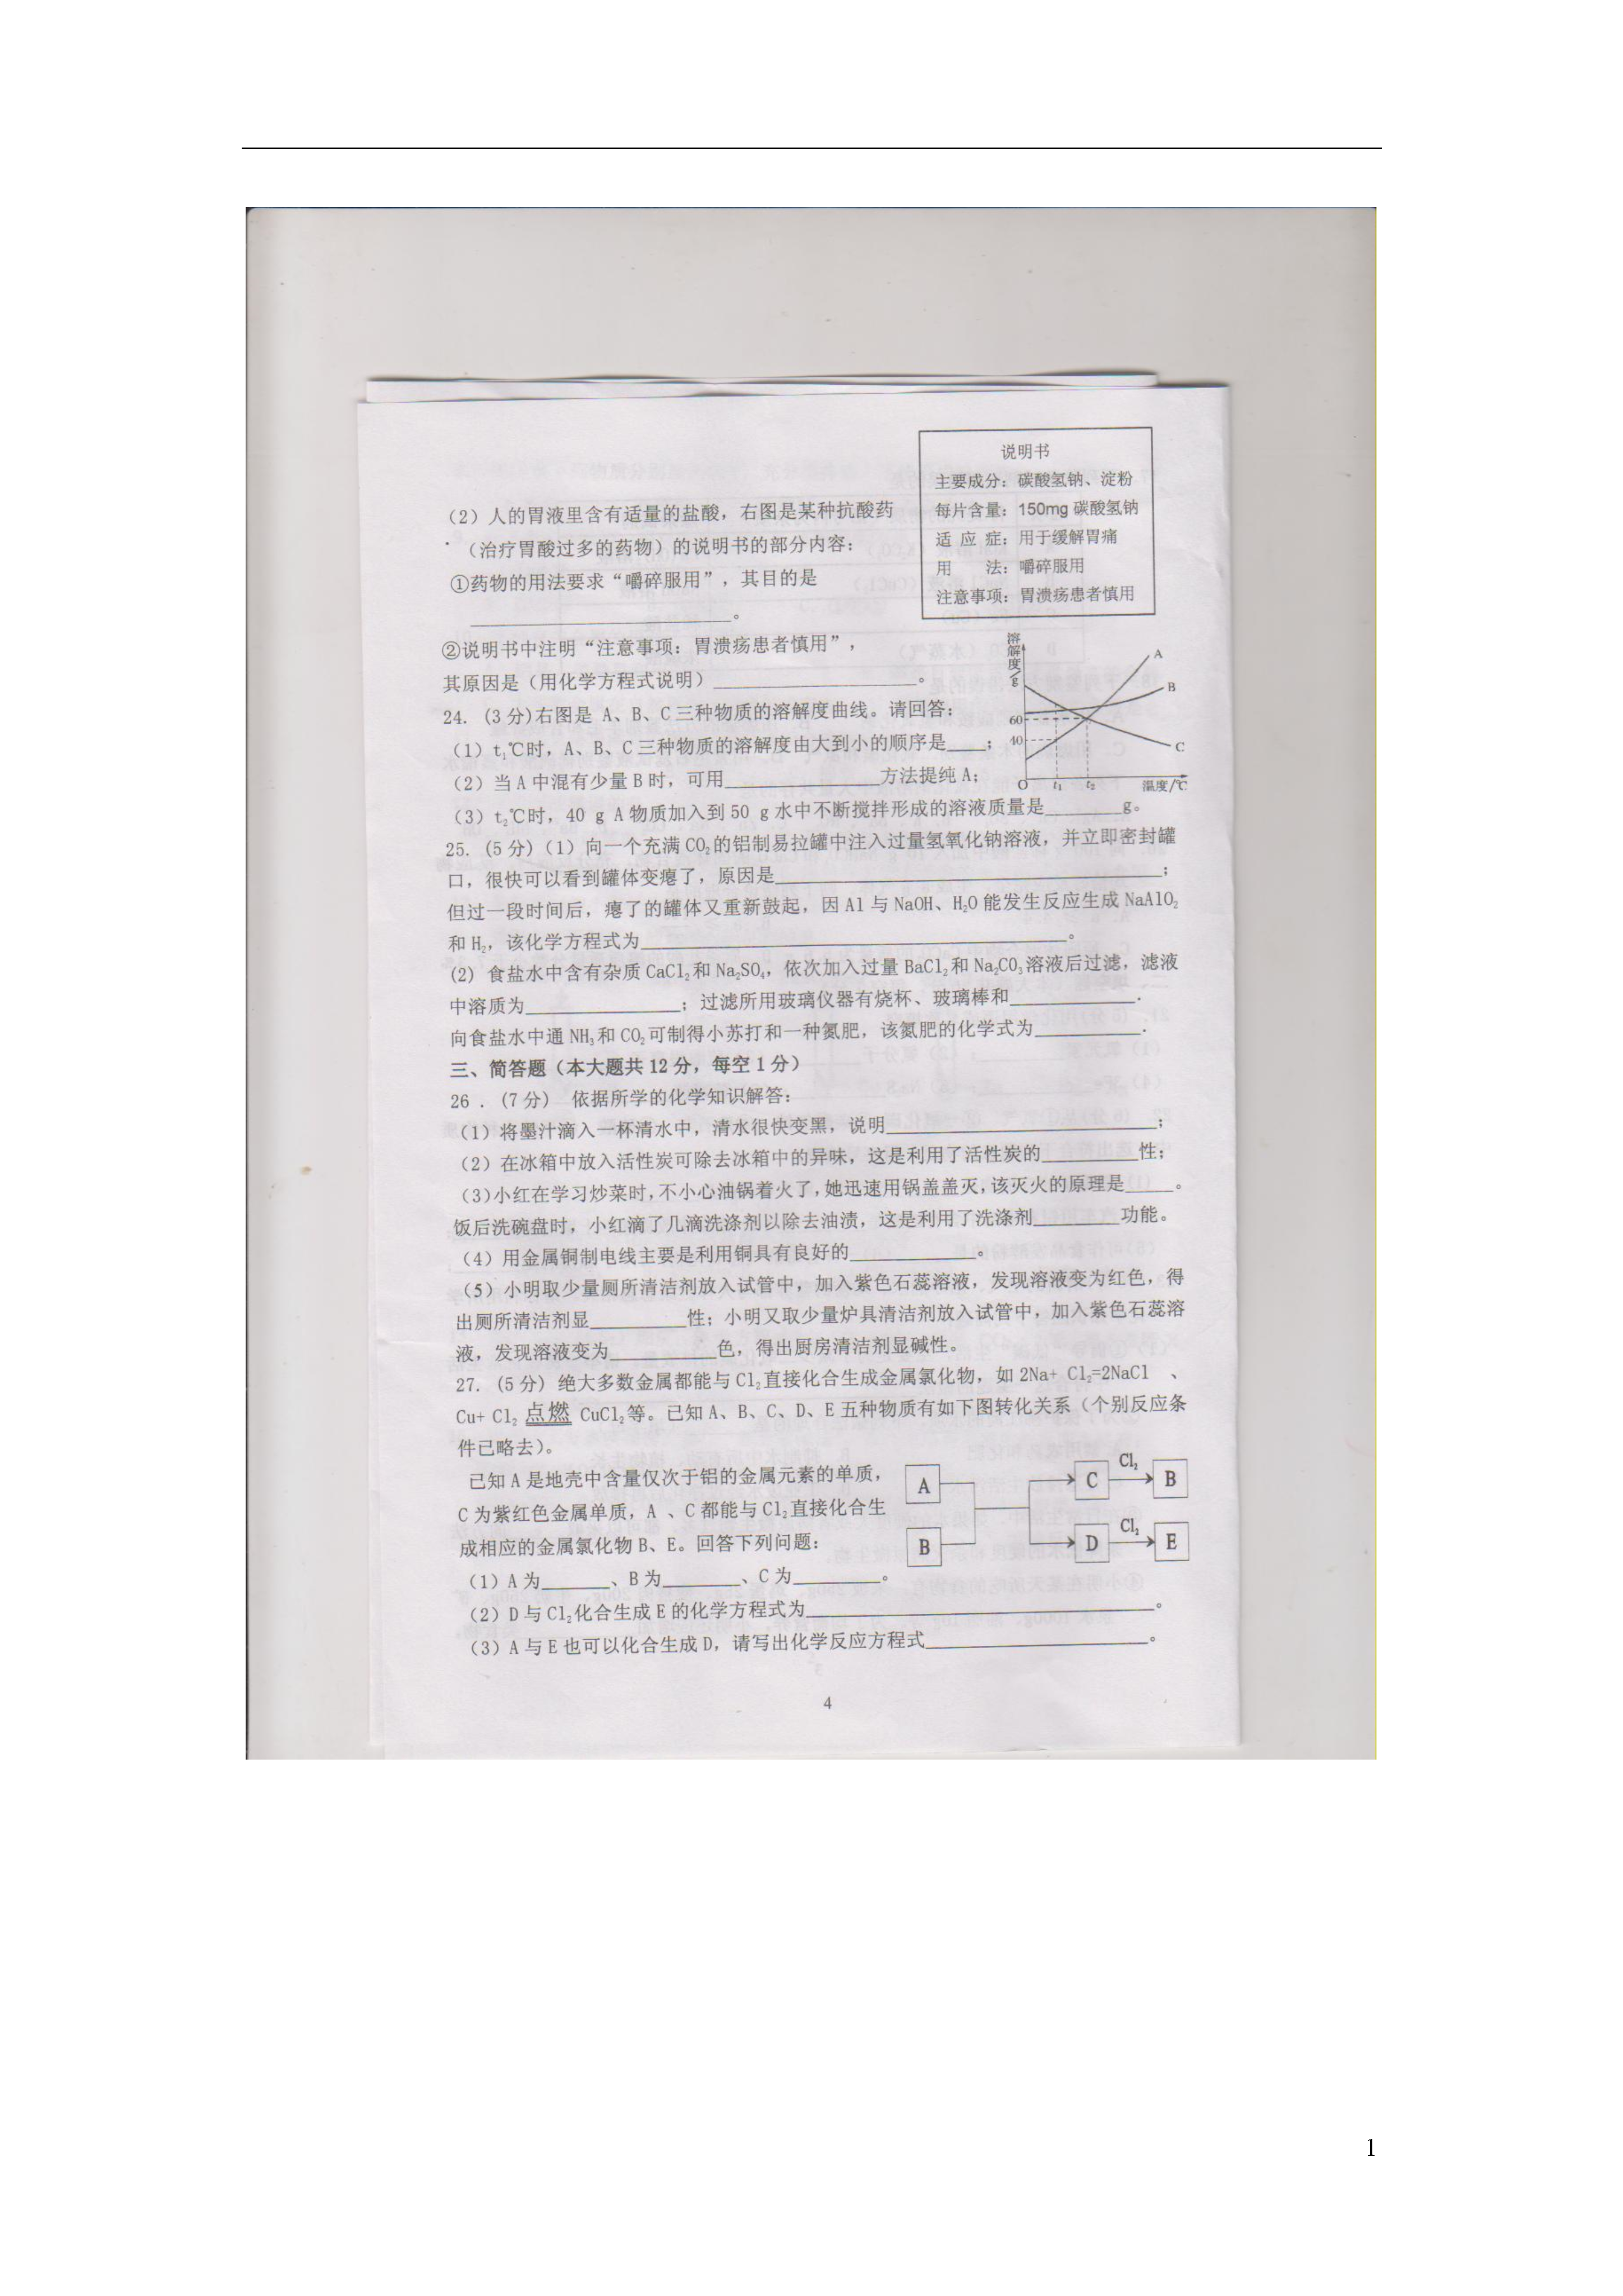 说明书
主要成分：碳酸氢钠、淀粉
每片含量：150mg 碳酸氢钠
适 应 症：用于缓解胃痛
用 法：嚼碎服用
注意事项：胃溃疡患者慎用
（2）人的胃液里含有适量的盐酸，右图是某种抗酸药
（治疗胃酸过多的药物）的说明书的部分内容：
①药物的用法要求“嚼碎服用”，其目的是
____________________。
②说明书中注明“注意事项：胃溃疡患者慎用”，
其原因是（用化学方程式说明）____________________。
溶解度/g
A
B
C
60
40
O
t₁
t₂
温度/℃
24. (3 分)右图是 A、B、C三种物质的溶解度曲线。请回答：
（1）t₁℃时，A、B、C三种物质的溶解度由大到小的顺序是____；
（2）当 A 中混有少量 B 时，可用______________方法提纯 A；
（3）t₂℃时，40 g A 物质加入到 50 g 水中不断搅拌形成的溶液质量是________g。
25. (5 分)（1）向一个充满 CO₂的铝制易拉罐中注入过量氢氧化钠溶液，并立即密封罐
口，很快可以看到罐体变瘪了，原因是________________________________；
但过一段时间后，瘪了的罐体又重新鼓起，因 Al 与 NaOH、H₂O 能发生反应生成 NaAlO₂
和 H₂，该化学方程式为____________________________________。
(2) 食盐水中含有杂质 CaCl₂和 Na₂SO₄，依次加入过量 BaCl₂和 Na₂CO₃溶液后过滤，滤液
中溶质为______________；过滤所用玻璃仪器有烧杯、玻璃棒和____________.
向食盐水中通 NH₃和 CO₂可制得小苏打和一种氮肥，该氮肥的化学式为__________.
三、简答题（本大题共 12 分，每空 1 分）
26 . (7 分) 依据所学的化学知识解答：
（1）将墨汁滴入一杯清水中，清水很快变黑，说明________________________；
（2）在冰箱中放入活性炭可除去冰箱中的异味，这是利用了活性炭的_________性；
（3)小红在学习炒菜时,不小心油锅着火了,她迅速用锅盖盖灭,该灭火的原理是_____。
饭后洗碗盘时，小红滴了几滴洗涤剂以除去油渍，这是利用了洗涤剂________功能。
（4）用金属铜制电线主要是利用铜具有良好的____________。
（5）小明取少量厕所清洁剂放入试管中，加入紫色石蕊溶液，发现溶液变为红色，得
出厕所清洁剂显_________性；小明又取少量炉具清洁剂放入试管中，加入紫色石蕊溶
液，发现溶液变为__________色，得出厨房清洁剂显碱性。
27. (5 分) 绝大多数金属都能与 Cl₂直接化合生成金属氯化物，如 2Na+ Cl₂=2NaCl 、
Cu+ Cl₂ 点燃 CuCl₂等。已知 A、B、C、D、E 五种物质有如下图转化关系（个别反应条
件已略去）。
已知 A 是地壳中含量仅次于铝的金属元素的单质，
C 为紫红色金属单质，A 、C 都能与 Cl₂直接化合生
成相应的金属氯化物 B、E。回答下列问题：
A
B
C
Cl₂
B
D
Cl₂
E
（1）A 为______、B 为_______、C 为________。
（2）D 与 Cl₂化合生成 E 的化学方程式为________________________________。
（3）A 与 E 也可以化合生成 D，请写出化学反应方程式____________________。
4
1